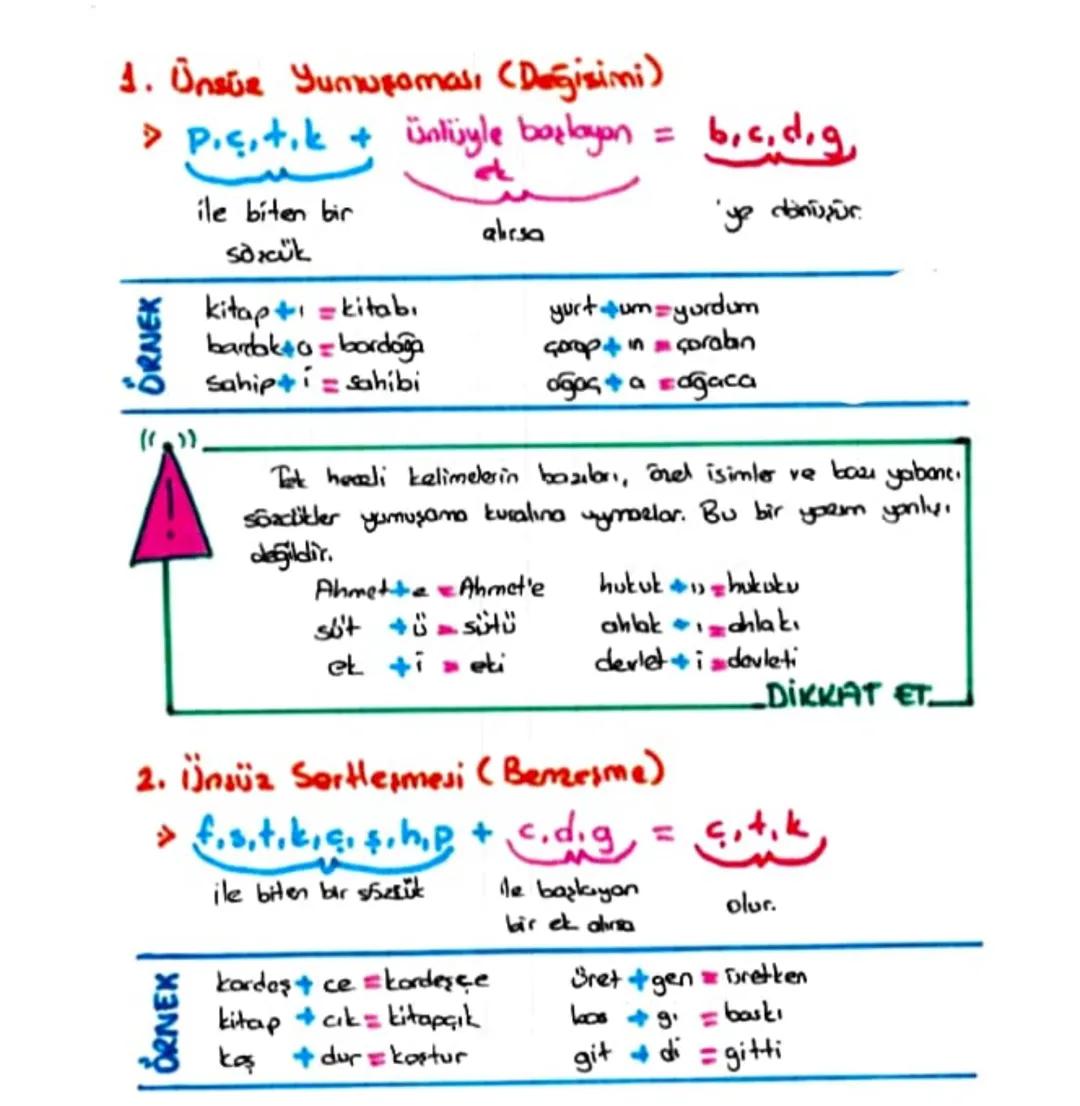 1. Ünsüz Yumuşaması (Değişimi)
> p,ç,t,k + ünlüyle başlayan ek = b,c,d,g
ile biten bir sözcük alırsa 'ye dönüşür.
ÖRNEK
kitap + ı = kitabı yurt + um = yurdum
bardak + a = bardağa çorap + ın = çorabın
sahip + i = sahibi ağaç + a = ağaca
Tek heceli kelimelerin bazıları, özel isimler ve bazı yabancı
sözcükler yumuşama kuralına uymazlar. Bu bir yazım yanlışı
değildir.
Ahmet + e = Ahmet'e hukuk + u = hukuku
süt + ü = sütü ahlak + ı = ahlakı
ek + i = eki devlet + i = devleti
DİKKAT ET
2. Ünsüz Sertleşmesi (Benzeşme)
> f,s,t,k,ç,ş,h,p + c,d,g = ç,t,k
ile biten bir sözcük ile başlayan bir ek alırsa olur.
ÖRNEK
kardeş + ce = kardeşçe üret + gen = üretken
kitap + cık = kitapçık bas + gı = baskı
koş + dur = koştur git + di = gitti